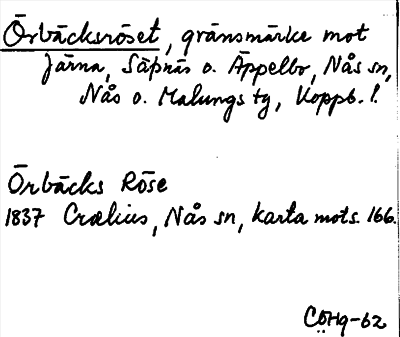 Örbäcksröset, gränsmärke mot
Järna, Säfsnäs o. Äppelbo, Nås sn,
Nås o. Malungs tg, Koppb. l.
Örbäcks Röse
1837 Crælius, Nås sn, karta mots. 166.
CÖHg-62